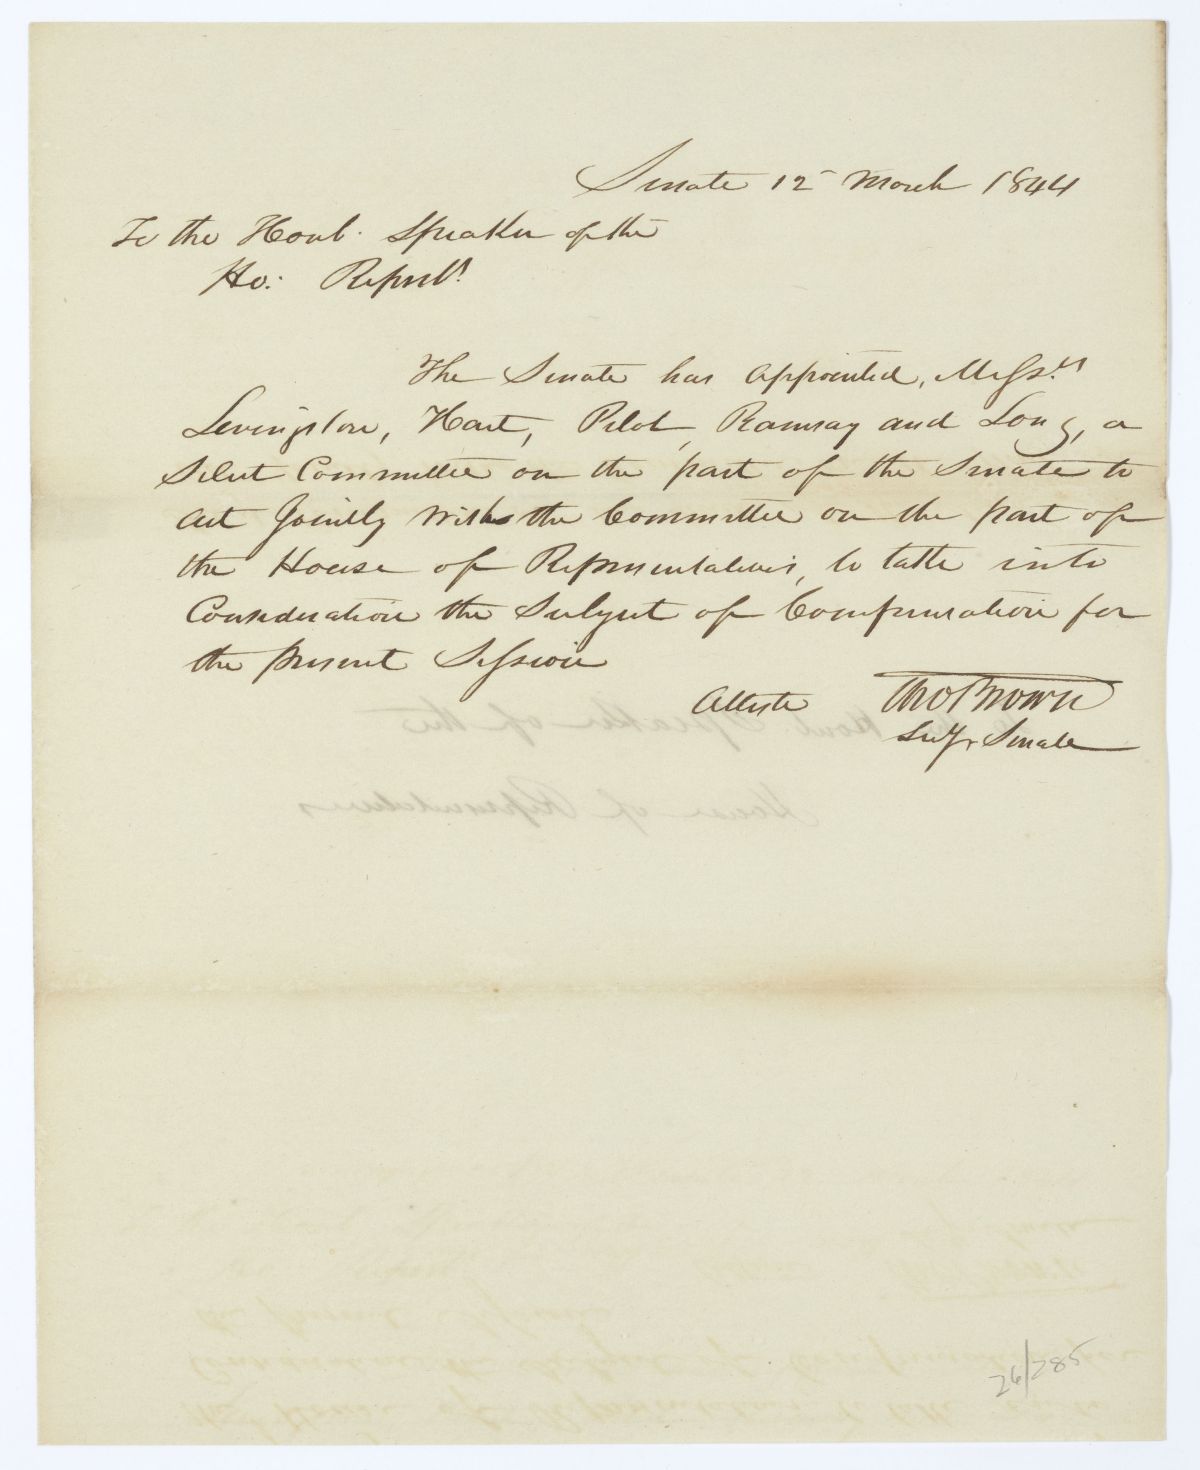 Senate 12 March 1844
To the Honl. Speaker of the
Ho: Represts.
The Senate has appointed, Messrs
Levingston, Hart, Pilot, Ramsay and Long, a
Select Committee on the part of the Senate to
act Jointly with the Committee on the part of
the House of Representatives, to take into
Consideration the Subject of Compensation for
the present Session
Atteste Tho Brown
Secy. Senate
Honl. Speaker of the
House of Representatives
26/285